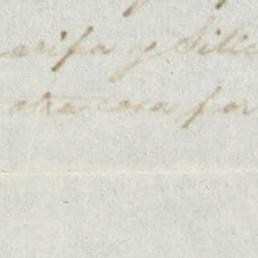 arifa y Silic
otra cosa por